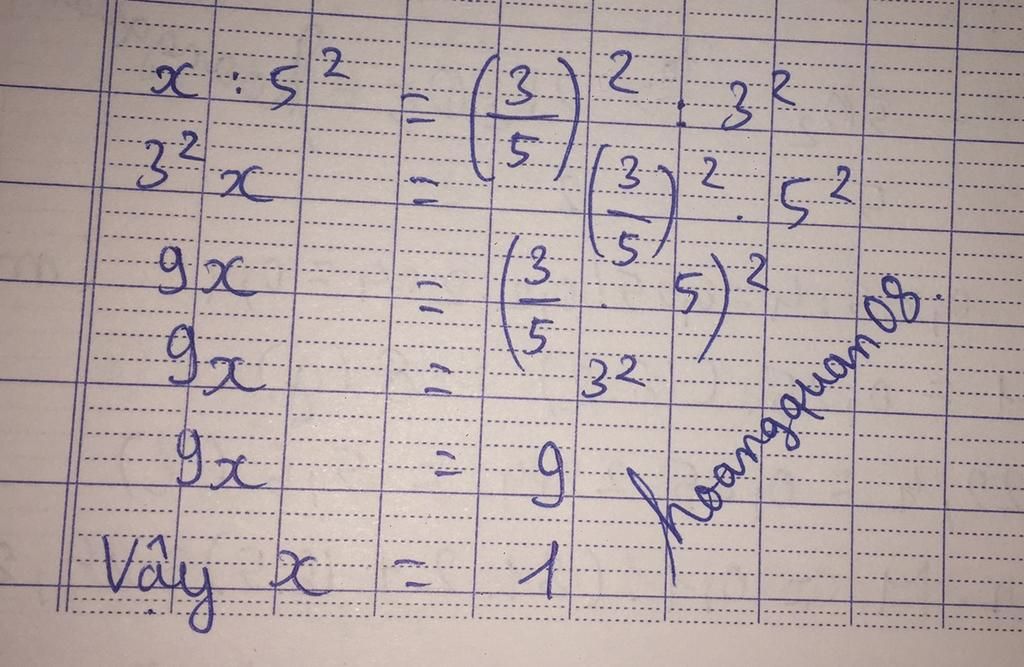 x : 5² = (3/5)² : 3²
3²x = (3/5)² . 5²
9x = (3/5 . 5)²
9x = 3²
9x = 9
Vậy x = 1
hoangquan08.